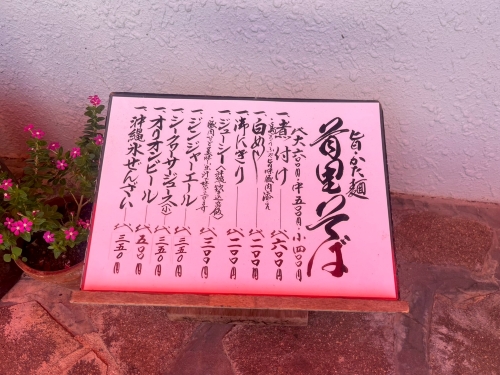 旨・かた麺
首里そば
大六〇〇円・中五〇〇円・小四〇〇円
一、煮付け 六〇〇円
一、白めし 二〇〇円
一、御にぎり 二〇〇円
一、ジューシー 三〇〇円
一、ジンジャーエール 三五〇円
一、シークヮーサージュース(小) 三五〇円
一、オリオンビール 五〇〇円
一、沖縄氷ぜんざい 三五〇円